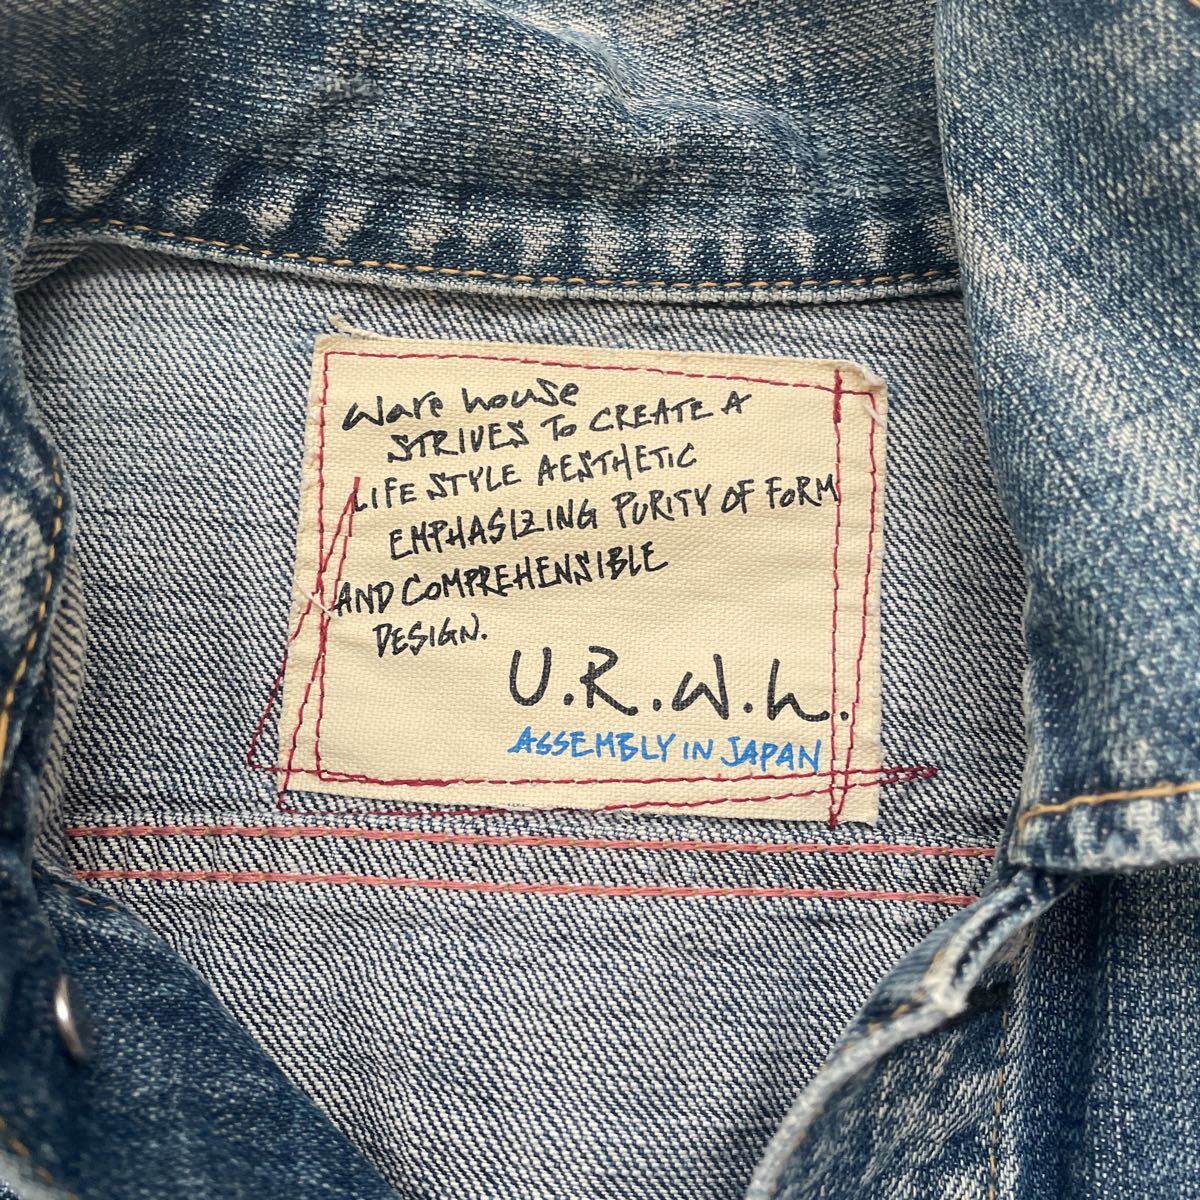 Ware house
STRIVES To CREATE A
LIFE STYLE AESTHETIC
EMPHASIZING PURITY OF FORM
AND COMPREHENSIBLE
DESIGN.
U.R.W.h.
ASSEMBLY IN JAPAN